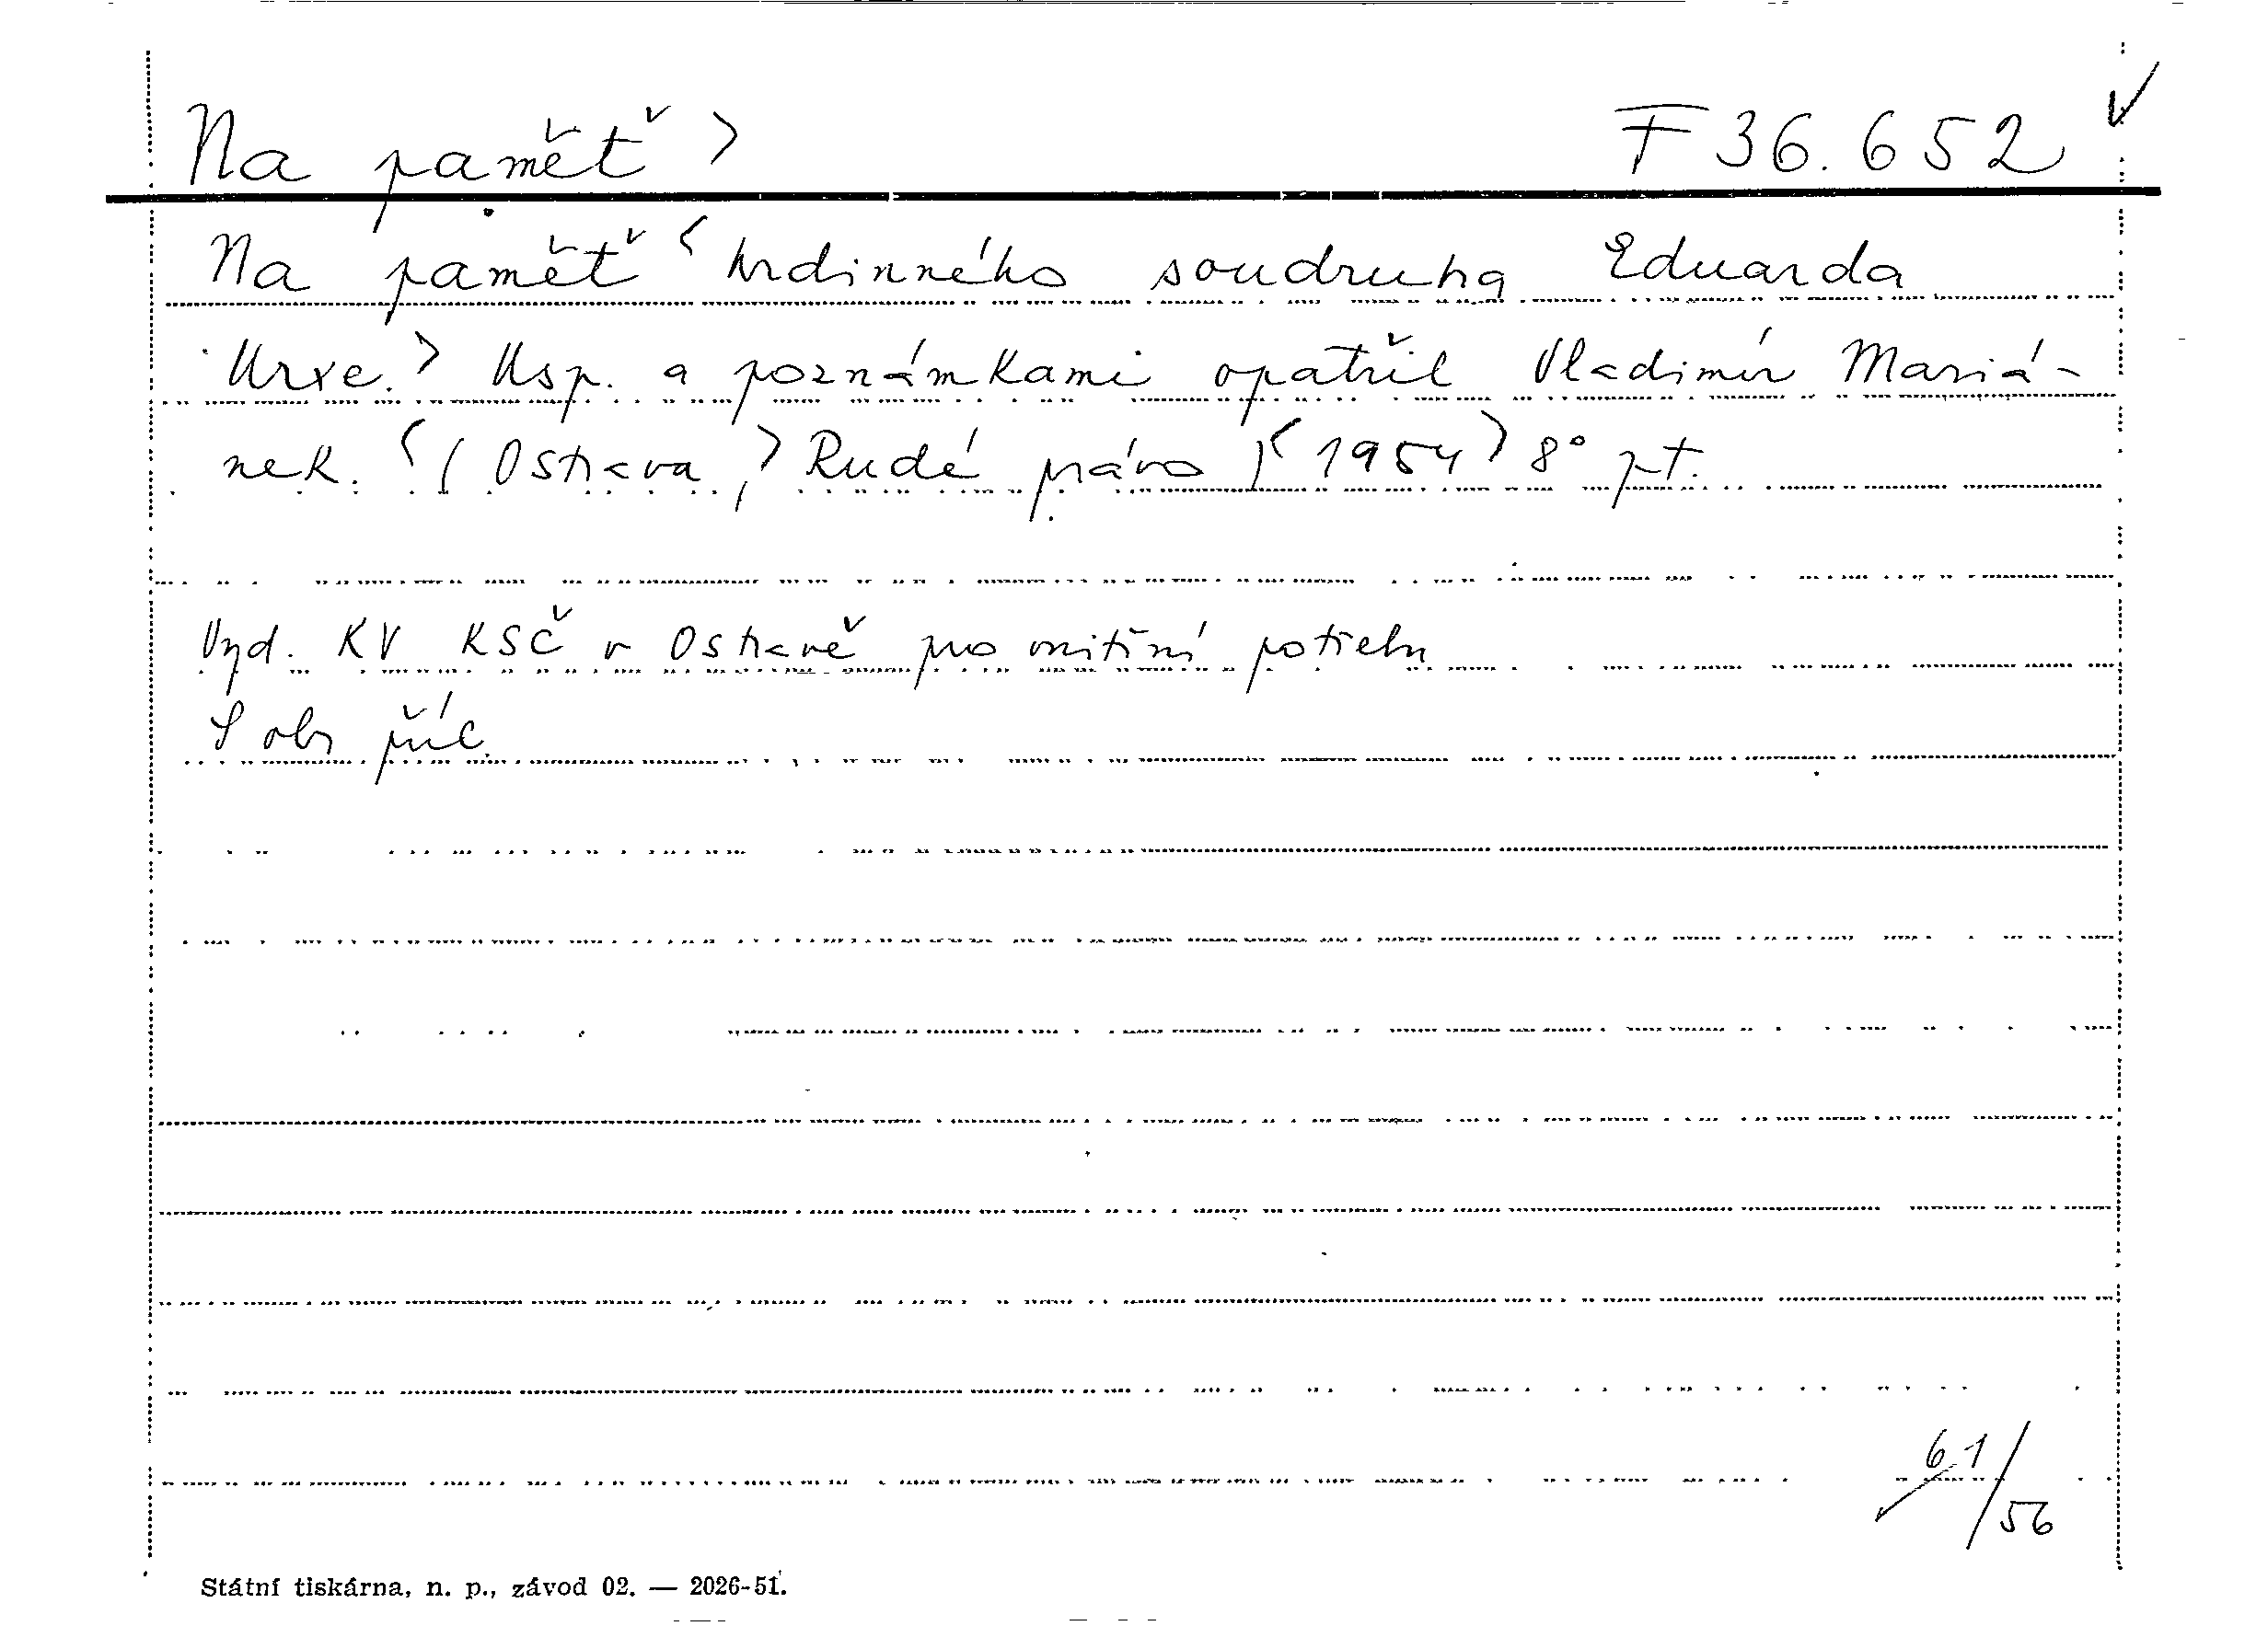 Na paměť > F 36.652 ✓
Na paměť < hrdinného soudruha Eduarda
Urxe. > Usp. a poznámkami opatřil Vladimír Mariá-
nek. < ( Ostrava, > Rudé právo ) < 1954 > 8° pt.
Vyd. KV KSČ v Ostravě pro vnitřní potřebu
S obr. příl.
61/56
Státní tiskárna, n. p., závod 02. — 2026-51.